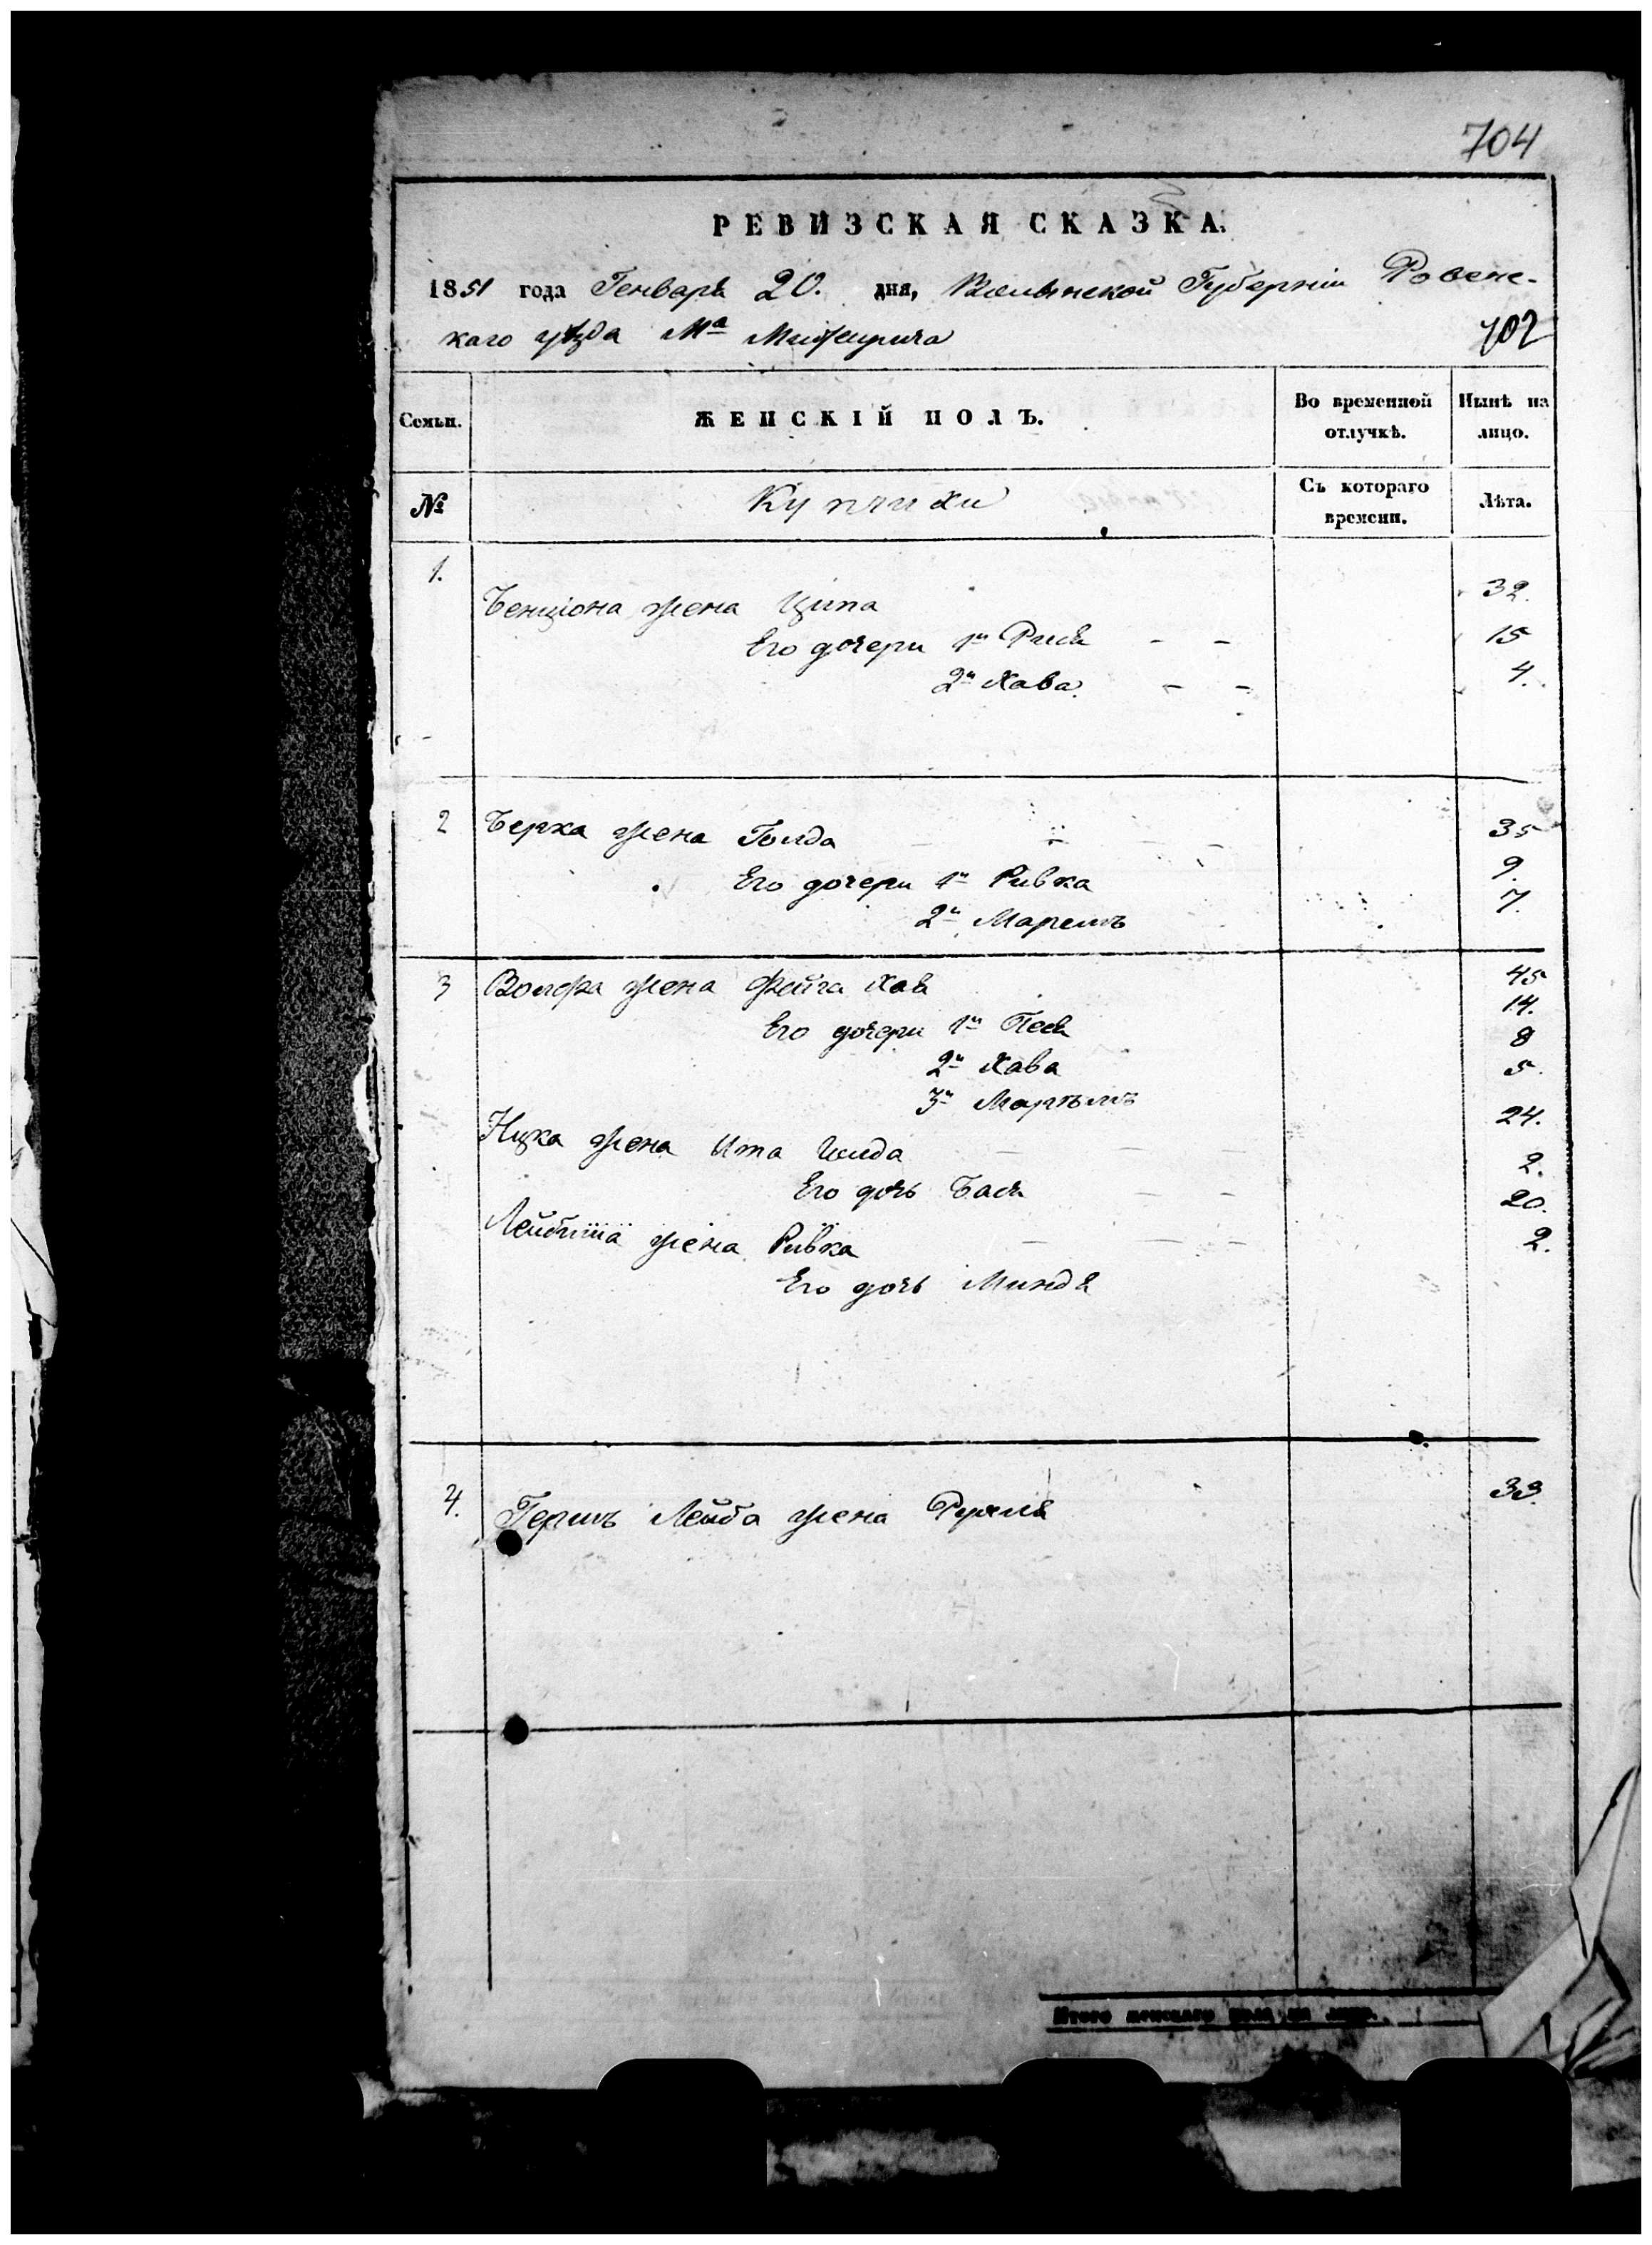 704
РЕВИЗСКАЯ СКАЗКА.
1851 года Генваря 20. дня, Волынской Губерніи Ровенс-
каго уѣзда Мᵃ Межирича
702
Семьи.
ЖЕНСКІЙ ПОЛЪ.
Во временной отлучкѣ.
Нынѣ на лицо.
№
Купчихи
Съ котораго времени.
Лѣта.
1.
Бенціона жена Ципа 32.
Его дочери 1ⁿ Рися - - 15
2ⁿ Хава - - 4.
2 Берка жена Голда 35
Его дочери 1ⁿ Ривка 9.
2ⁿ Маремъ 7.
3 Волфа жена Фейга Хая 45
Его дочери 1ⁿ Песя 14.
2ⁿ Хава 8
3ⁿ 5.
жена Ита 24.
Его дочь Бася 2.
Лейбиша жена Ривка 20.
Его дочь Миндя 2.
4. Гершъ Лейба жена Рухля 33.
Итого женскаго пола на лицо.